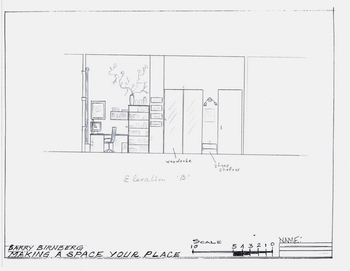 wardrobe
shoe
Elevation 'B'
BARRY BIRNBERG
MAKING A SPACE YOUR PLACE
SCALE
10 5 4 3 2 1 0
NAME: